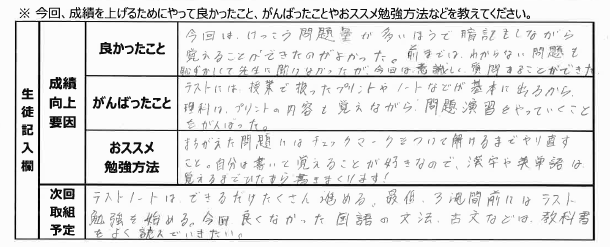 ※ 今回、成績を上げるためにやって良かったこと、がんばったことやおススメ勉強方法などを教えてください。
生徒記入欄
成績向上要因
良かったこと
今回は、けっこう問題量が多いほうで暗記をしながら
覚えることができたのがよかった。前までは、わからない問題も
恥ずかしくて先生に聞けなかったが今回は意識して質問することができた。
がんばったこと
テストには、授業で扱ったプリントやノートなどが基本に出るから、
理科は、プリントの内容も覚えながら問題演習をやっていくこと
をがんばった。
おススメ勉強方法
まちがえた問題にはチェックマークをつけて解けるまでやり直す
こと。自分は書いて覚えることが好きなので、漢字や英単語は
覚えるまでひたすら書きまくります!
次回取組予定
テストノートは、できるだけたくさん進める。最低、3週間前にはテスト
勉強を始める。今回良くなかった国語の文法、古文などは、教科書
をよく読んでいきたい。